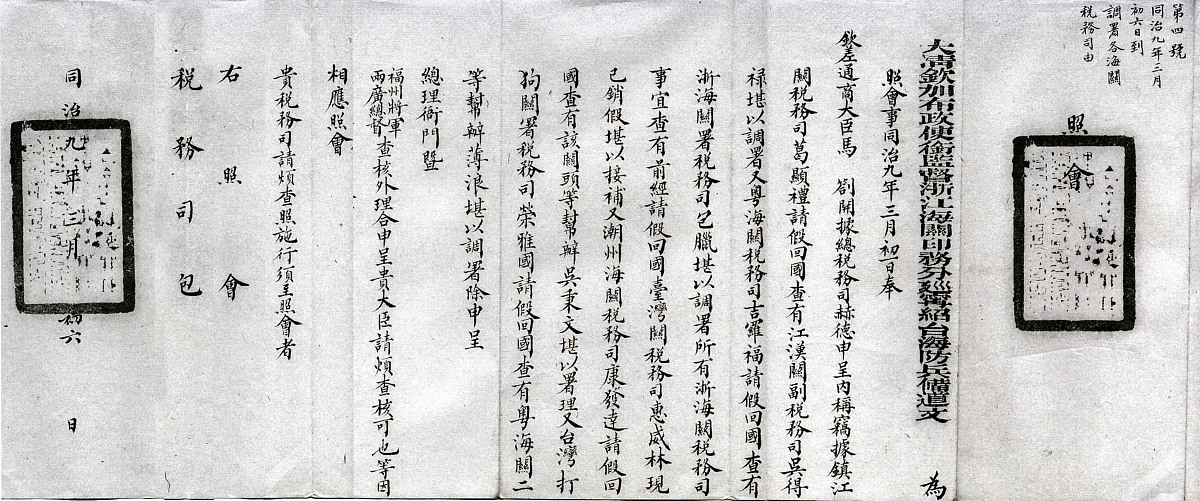 第四號
同治九年三月
初六日到
調署各海關
稅務司由
照會
大清欽加布政使銜監督浙江海關印務分巡寧紹台海防兵備道文 為
照會事同治九年三月初一日奉
欽差通商大臣馬 劄開據總稅務司赫德申呈內稱竊據鎮江
關稅務司葛顯禮請假回國查有江漢關副稅務司吳得
祿堪以調署又粵海關稅務司吉羅福請假回國查有
浙海關署稅務司包臘堪以調署所有浙海關稅務司
事宜查有前經請假回國臺灣關稅務司惠威林現
已銷假堪以接補又潮州海關稅務司康發達請假回
國查有該關頭等幫辦吳秉文堪以署理又台灣打
狗關署稅務司榮雅國請假回國查有粵海關二
等幫辦薄浪堪以調署除申呈
總理衙門暨
福州將軍
兩廣總督查核外理合申呈貴大臣請煩查核可也等因
相應照會
貴稅務司請煩查照施行須至照會者
右照會
稅務司包
同治九年三月初六日